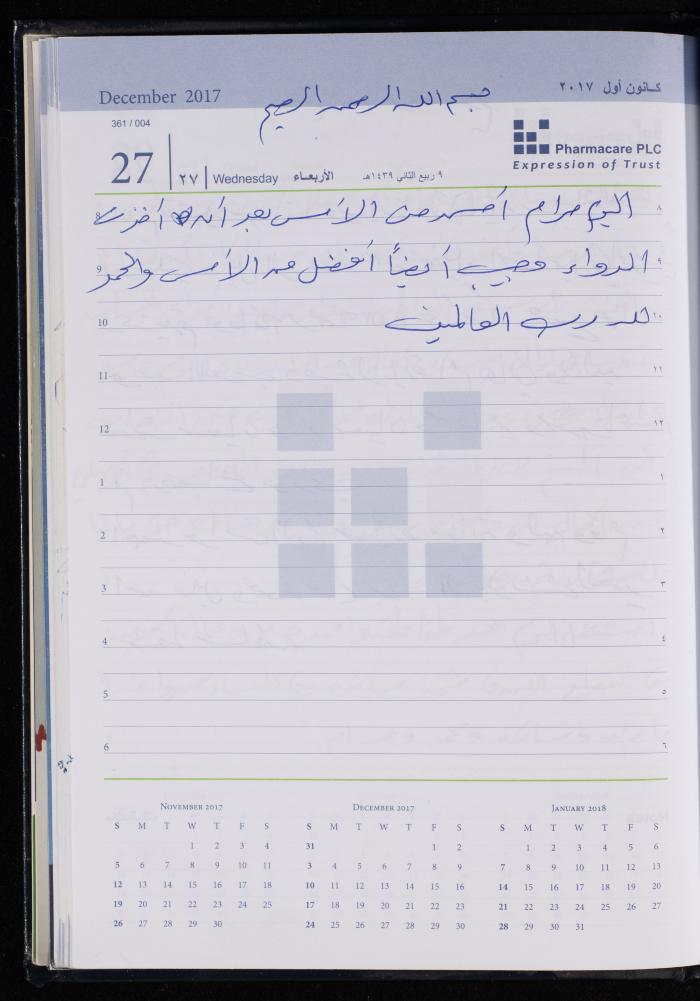 December 2017
بسم الله الرحمن الرحيم
كانون أول ٢٠١٧
361 / 004
27
٢٧
Wednesday
الأربعاء
٩ ربيع الثاني ١٤٣٩هـ
Pharmacare PLC
Expression of Trust
اليوم مرام أحسن من الأمس بعد أن أخذت
٨
الدواء وحبيب أيضاً أفضل من الأمس والحمد
٩
10 لله رب العالمين ١٠
11 ١١
12 ١٢
1 ١
2 ٢
3 ٣
4 ٤
5 ٥
6 ٦
November 2017
S M T W T F S
1 2 3 4
5 6 7 8 9 10 11
12 13 14 15 16 17 18
19 20 21 22 23 24 25
26 27 28 29 30
December 2017
S M T W T F S
31 1 2
3 4 5 6 7 8 9
10 11 12 13 14 15 16
17 18 19 20 21 22 23
24 25 26 27 28 29 30
January 2018
S M T W T F S
1 2 3 4 5 6
7 8 9 10 11 12 13
14 15 16 17 18 19 20
21 22 23 24 25 26 27
28 29 30 31